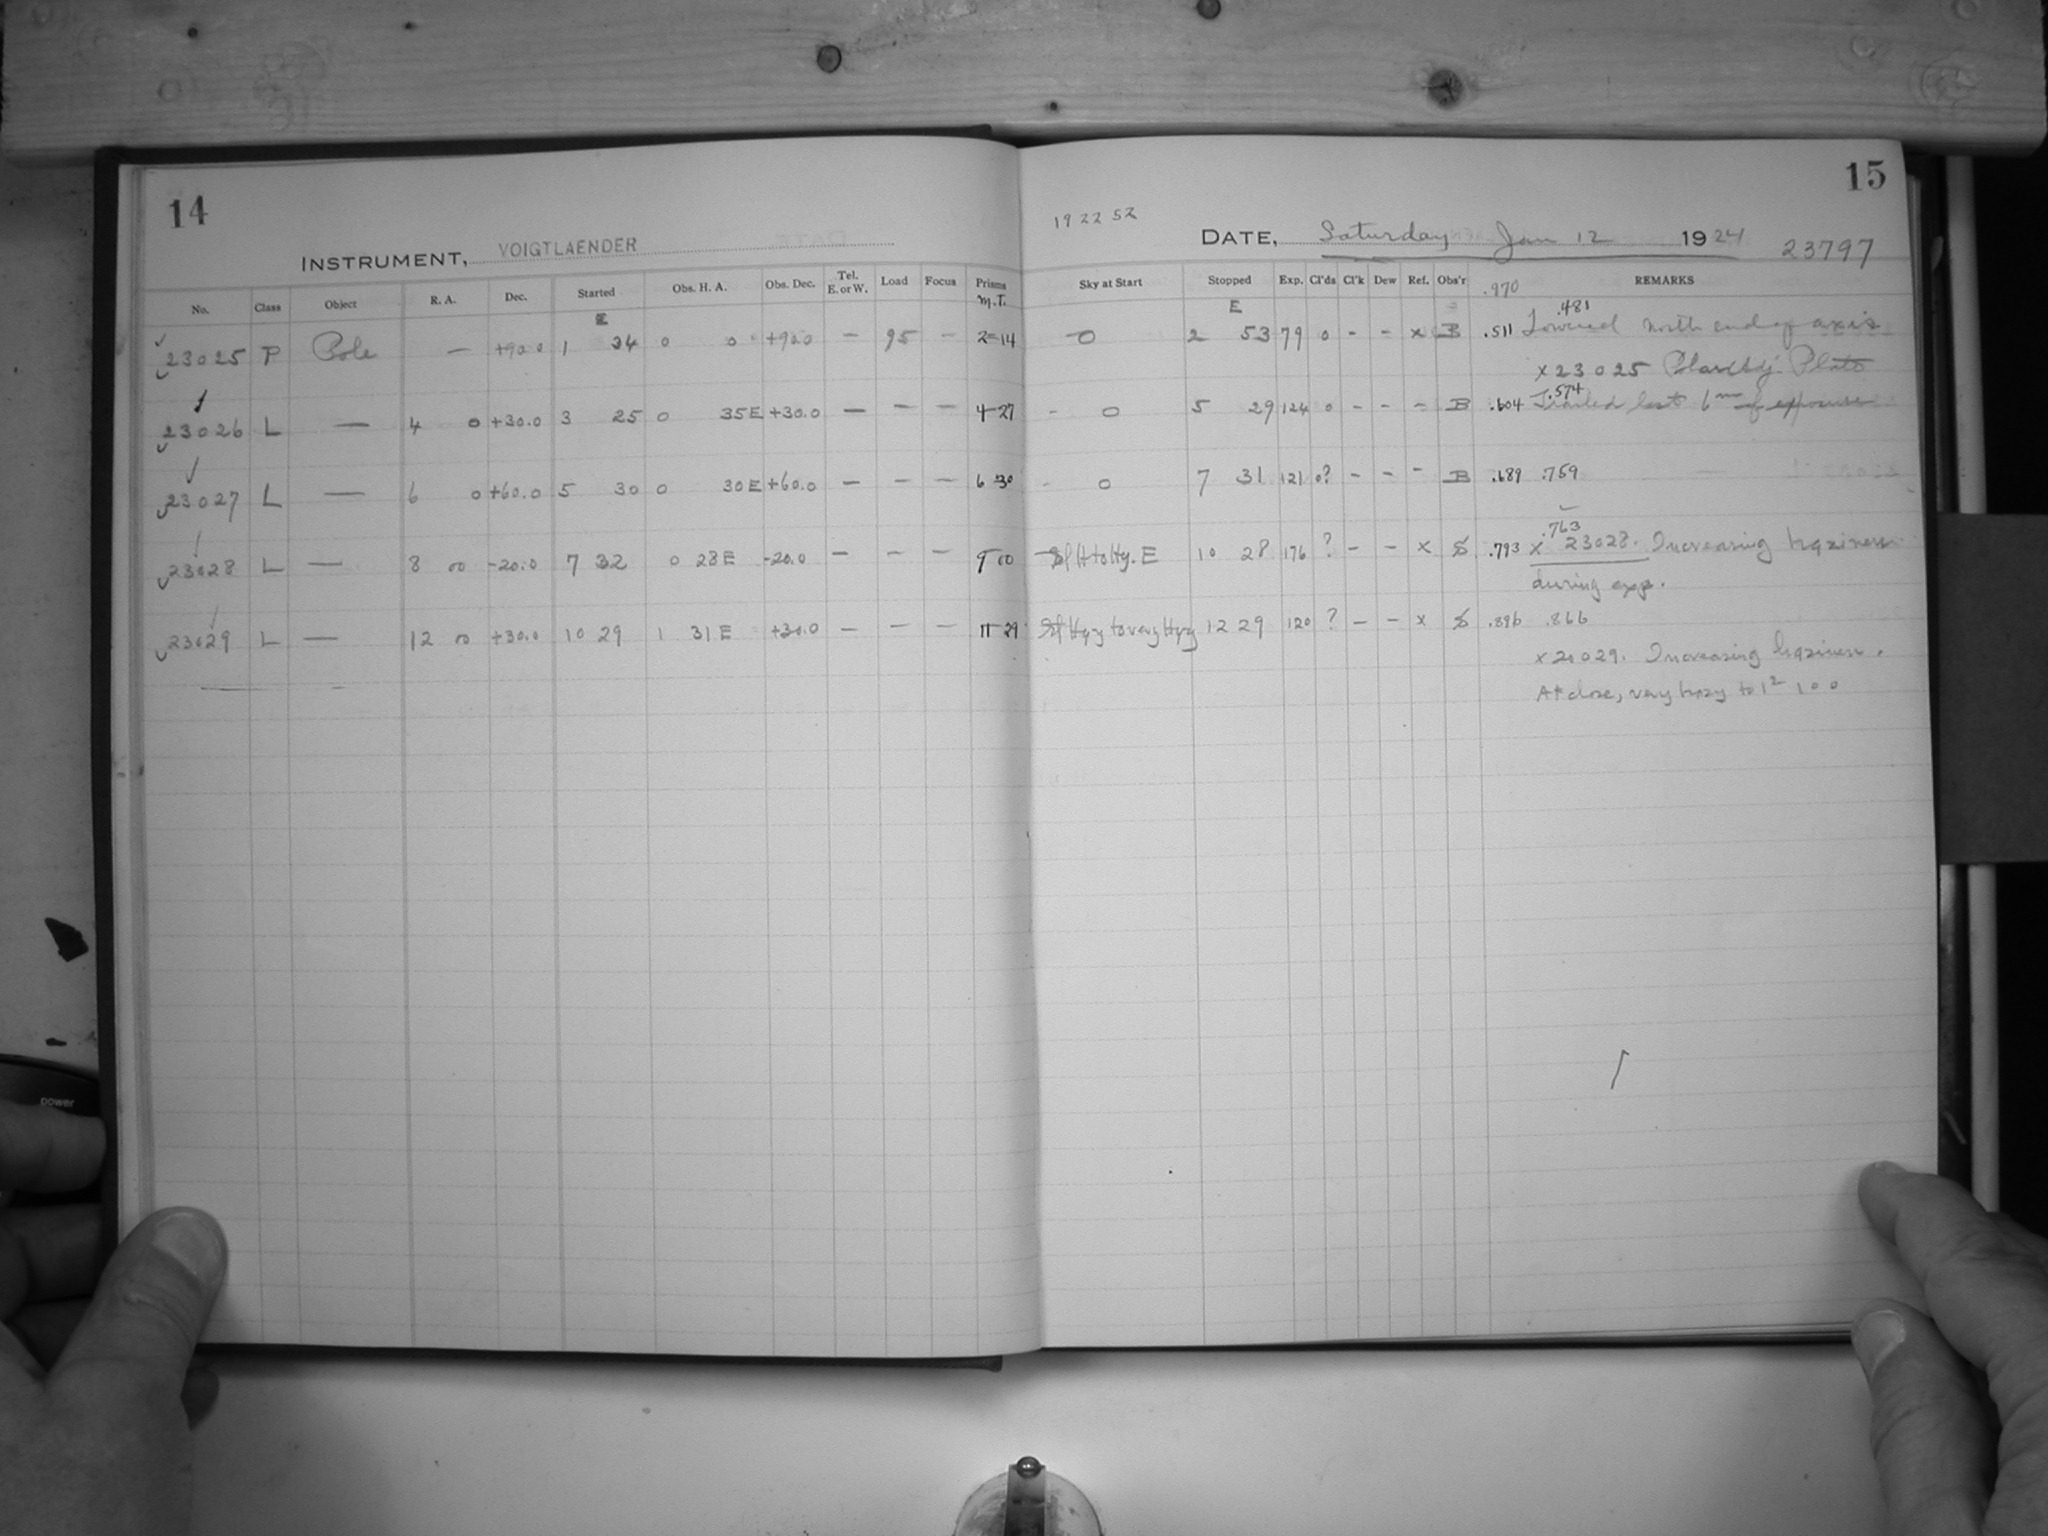 14
INSTRUMENT, VOIGTLAENDER
No. Class Object R. A. Dec. Started Obs. H. A. Obs. Dec. Tel. E. or W. Load Focus Prisms
E M.T.
23025 P Pole — +90.0 1 34 0 0 +90.0 — 95 — 2 14
23026 L — 4 0 +30.0 3 25 0 35E +30.0 — — — 4 27
23027 L — 6 0 +60.0 5 30 0 30E +60.0 — — — 6 30
23028 L — 8 00 -20.0 7 32 0 28E -20.0 — — — 9 00
23029 L — 12 00 +30.0 10 29 1 31E +30.0 — — — 11 29
15
19 22 52
DATE, Saturday Jan 12 1924 23797
Sky at Start Stopped Exp. Cl'ds Cl'k Dew Ref. Obs'r REMARKS
E .970
.481
0 2 53 79 0 - - x B .511 Lowered north end of axis
x 23025 Plate
.574
- 0 5 29 124 0 - - - B .604 Trailed last 6m of exposure
- 0 7 31 121 0? - - - B .689 .759
.763
H to Hy. E 10 28 176 ? - - x S .793 x 23028. Increasing haziness
during exp.
Hzy to very Hzy 12 29 120 ? - - x S .896 .866
x 20029. Increasing haziness.
At close, very hazy to 12 100
power